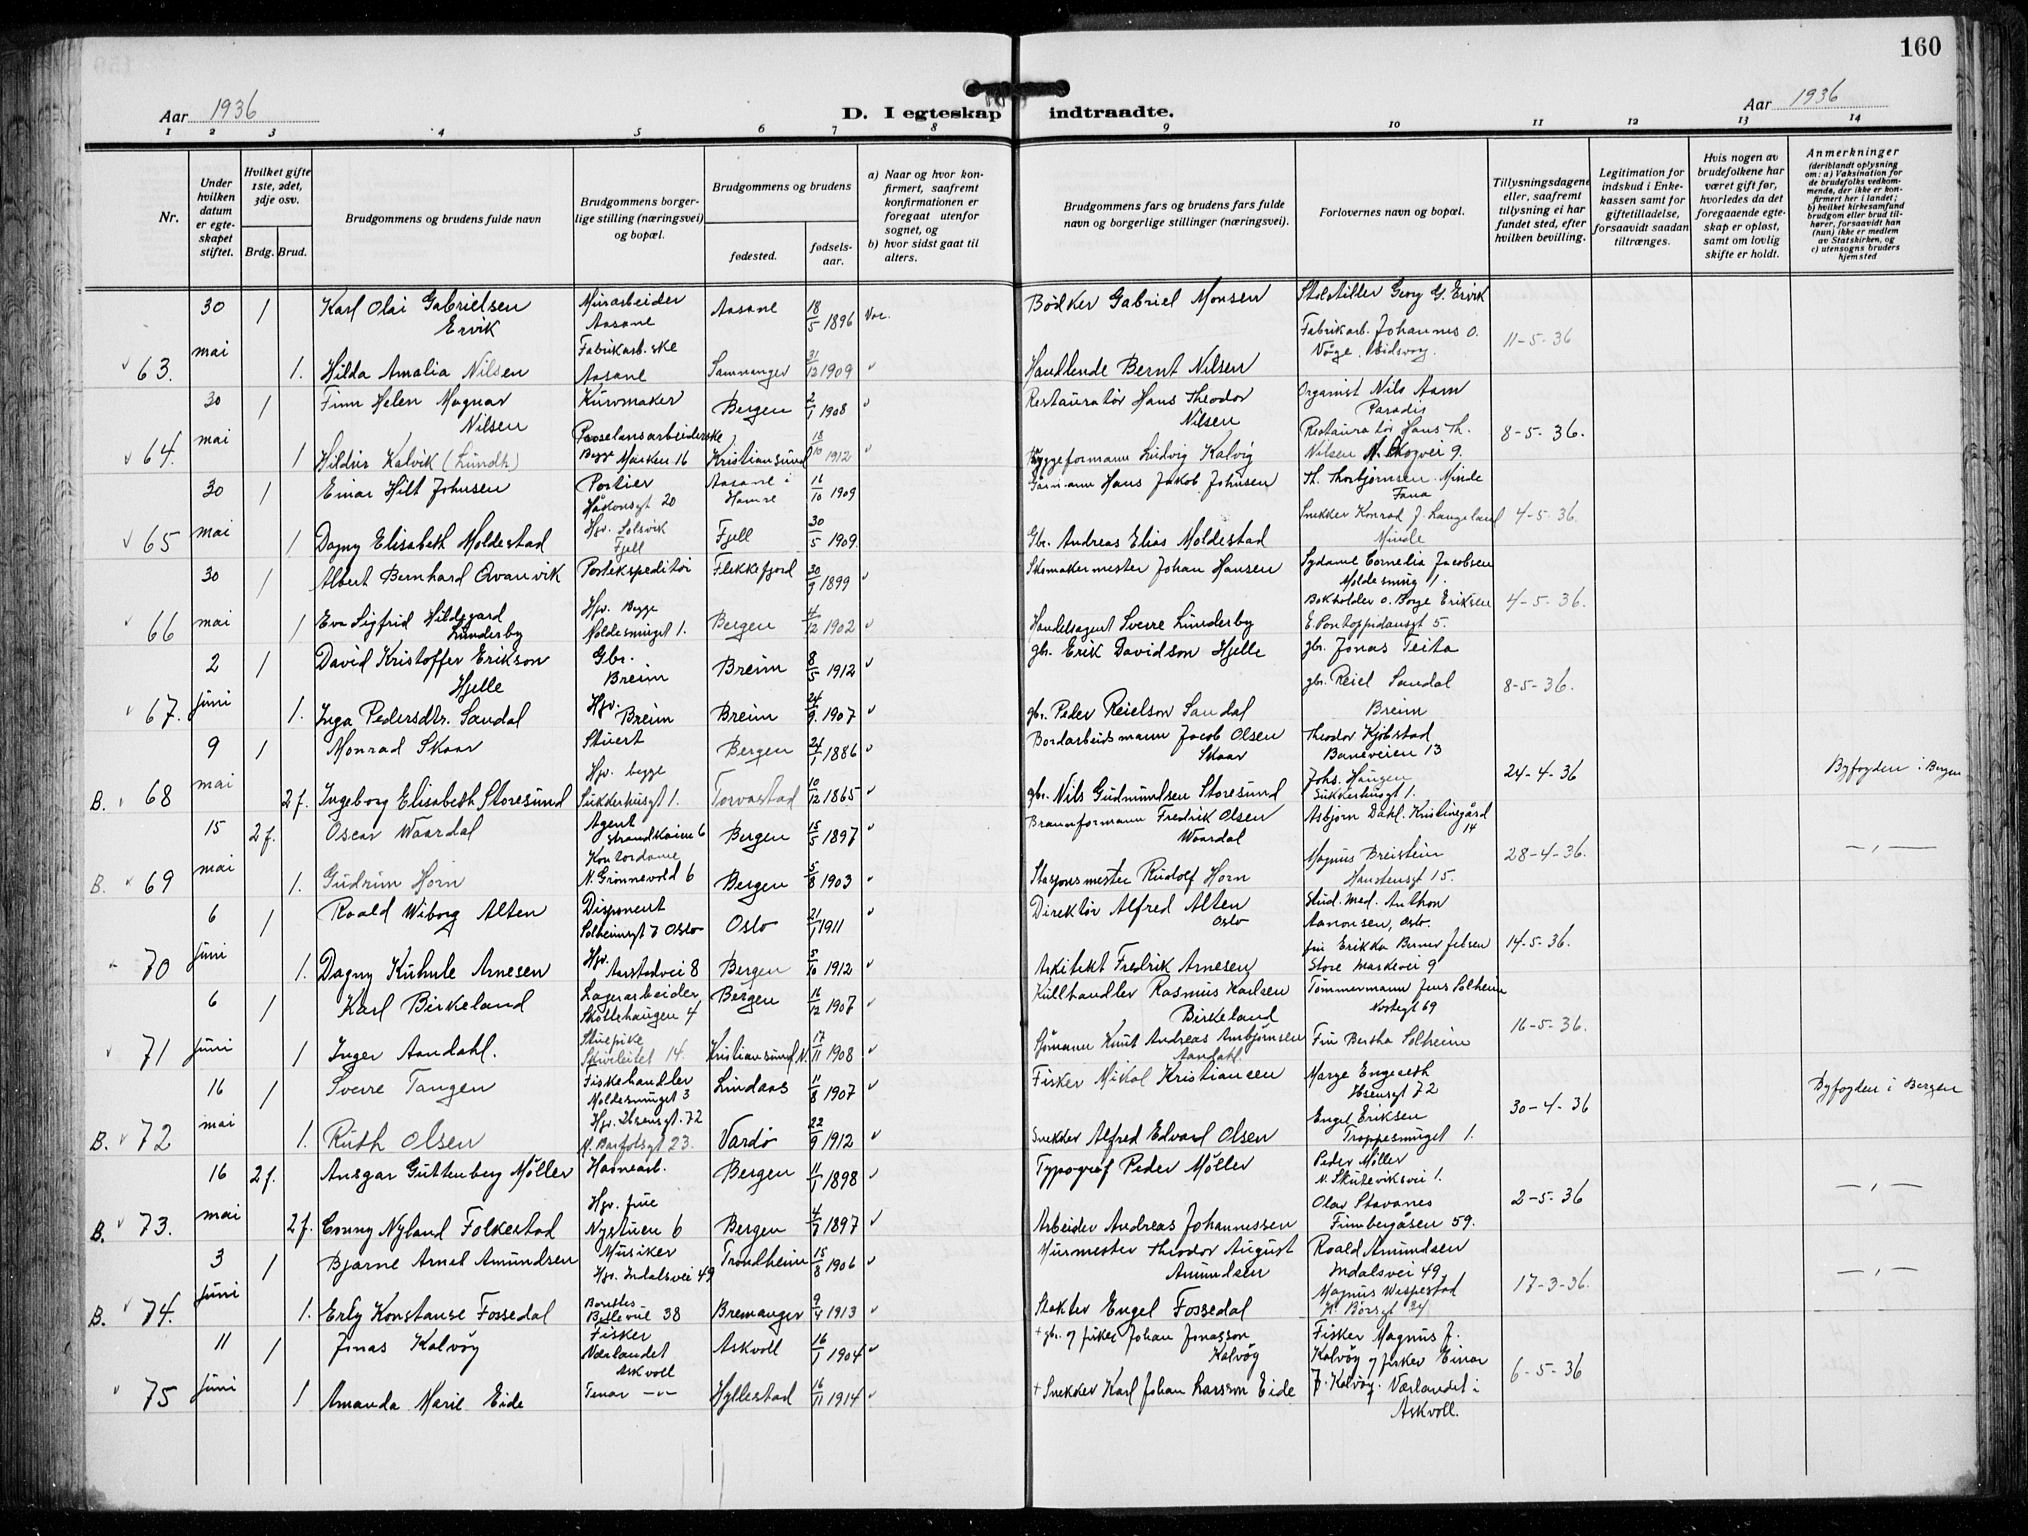 160
Aar 1936
D. I egteskap indtraadte.
Aar 1936
1 2 3 4 5 6 7 8 9 10 11 12 13 14
Nr.
Under hvilken datum er egteskapet stiftet.
Hvilket gifte 1ste, 2det, 3dje osv.
Brdg. Brud.
Brudgommens og brudens fulde navn
Brudgommens borgerlige stilling (næringsvei) og bopæl.
Brudgommens og brudens
fødested.
fødselsaar.
a) Naar og hvor konfirmert, saafremt konfirmationen er foregaat utenfor sognet, og
b) hvor sidst gaat til alters.
Brudgommens fars og brudens fars fulde navn og borgerlige stillinger (næringsvei).
Forlovernes navn og bopæl.
Tillysningsdagene eller, saafremt tillysning ei har fundet sted, efter hvilken bevilling.
Legitimation for indskud i Enkekassen samt for giftetilladelse, forsaavidt saadan tiltrænges.
Hvis nogen av brudefolkene har været gift før, hvorledes da det foregaaende egteskap er opløst, samt om lovlig skifte er holdt.
Anmerkninger
(deriblandt oplysning om: a) Vaksination for de brudefolks vedkommende, der ikke er konfirmert her i landet; b) hvilket kirkesamfund brudgom eller brud tilhører, forsaavidt han (hun) ikke er medlem av Statskirken, og c) utensogns bruders hjemsted
30 1 Karl Olai Gabrielsen Ervik Murarbeider Aasane Aasane 18/5 1896 Vac. Bødker Gabriel Monsen Georg G. Ervik
63. mai 1. Hilda Amalia Nilsen Fabrikarb.ske Aasane Samnanger 31/12 1909 Handlende Bernt Nilsen Fabrikarb. Johannes O. Våge 11-5-36
30 1 Finn Helen Magnar Nilsen Kurvmaker Bergen 2/1 1908 Restauratør Hans Theodor Nilsen Organist Nils Aarn Paradis
64. mai 1 Hildur Kalvik (Lundh) Begge Marken 16 Kristiansund 18/10 1912 Byggeformann Ludvig Kalvig Restauratør Hans Th. Nilsen N. Skogvei 9. 8-5-36.
30 1 Einar Hilt Johnsen Portier Håkonsgt 20 Aasane i Hamre 16/10 1909 Hans Jakob Johnsen Th. Thorbjørnsen Minde Fana
65 mai 1 Dagny Elisabeth Moldestad Hjv. Solsvik Fjell Fjell 30/5 1909. Gbr. Andreas Elias Moldestad Snekker Konrad J. Langeland Minde 4-5-36.
30 1 Albert Bernhard Qvanvik Postekspeditør Flekkefjord 30/9 1899 Skomakermester Johan Hansen Sydame Cornelia Jacobsen Moldesmug 1.
66 mai 1 Eva Sigfrid Hildegard Lunderby Hjv. Begge Moldesmuget 1. Bergen 4/12 1902 Handelsagent Sverre Lunderby Bokholder O. Borge Eriksen E. Pontoppidansgt 5. 4-5-36.
2 1 David Kristoffer Erikson Hjelle Gbr. Breim Breim 8/5 1912 gbr. Erik Davidson Hjelle gbr. Jonas Teita
67. juni 1. Inga Pedersdtr. Sandal Hjv. Breim Breim 24/9. 1907 gbr. Peder Reielson Sandal gbr. Reiel Sandal Breim 8-5-36.
9 1 Monrad Skaar Stuert Bergen 24/1 1886 Bordarbeidsmann Jacob Olsen Skaar Theodor Kjøbstad Baneveien 13
B. 68 mai 2f. Ingeborg Elisabeth Storesund Hjv. begge Sukkerhusgt 1. Torvastad 10/12 1865 gbr. Nils Gudmundsen Storesund Johs. Haugen Sukkerhusgt 1. 24-4-36 Byfogden i Bergen
15 2f. Oscar Waardal Agent Strandkaien 6 Bergen 15/5 1897 Brannformann Fredrik Olsen Waardal Asbjørn Dahl. Kristinegård 14
B. 69 mai 1. Gudrun Horn Kontordame N. Grønnevold 6 Bergen 5/8 1903 Stasjonsmester Rudolf Horn Magnus Breistein Haustensgt 15. 28-4-36. — „ —
6 1 Roald Wiborg Alten Disponent Solheimsgt 7 Oslo Oslo 21/1 1911 Direktør Alfred Alten Oslo Stud. Med. Anthon Aanonsen, Oslo.
70 juni 1. Dagny Kuhnle Arnesen Hjv. Aarstadvei 8 Bergen 3/10 1912 Arkitekt Fredrik Arnesen fru Erikka Berner Jelsen Store Markevei 9 14-5-36.
6 1 Karl Birkeland Lagerarbeider Skottehaugen 4 Bergen 16/12 1907 Kullhandler Rasmus Karlsen Birkeland Tømmermann Jens Solheim Nostegt 69
71 juni 1 Inger Aandahl. Stuepike Skivebakken 14. Kristiansund N. 17/11 1908 Sjømann Knut Andreas Ambjørnsen Aandahl. Fru Bertha Solheim 16-5-36.
16 1 Sverre Tangen Fiskehandler Moldesmuget 3 Lindaas 11/8 1907 Fisker Mikal Kristiansen Marge Engeseth Ibsensgt 72
B. 72 mai 1. Ruth Olsen Hjv. Ibsensgt. 72 N. Barfotsgt 23. Vardø 22/9 1912 Snekker Alfred Edvard Olsen Engel Eriksen Troppesmuget 1. 30-4-36 Byfogden i Bergen
16 2f. Ansgar Guttenberg Møller Havnearb. Bergen 11/1 1898 Typograf Peder Møller Peder Møller N. Skuteviksvei 1.
B. 73. mai 2f. Conny Nyland Folkestad Hjv. frue Nystuen 6 Bergen 4/7 1897 Arbeider Andreas Johannessen Olav Stavanes Finnbergåsen 59. 2-5-36 — „ —
3 1 Bjarne Arnat Amundsen Musiker Hjv. Indalsvei 49 Trondheim 15/8 1906 Murmester Theodor August Amundsen Roald Amundsen Indalsvei 49,
B. 74. juni 1. Erly Konstanse Fossedal 38 Bremanger 9/4 1913 Engel Fossedal Magnus Wispestad 17-3-36. — „ —
11 1 Jonas Kalvøy Fisker Værlandet Askvoll Askvoll 16/1 1904 + gbr. og fisker Johan Jonasson Kalvøy Fisker Magnus J. Kalvøy og fisker Einar
75 juni 1 Amanda Marie Eide Tenar —„— Hyllestad 16/11 1914 + Snekker Karl Johan Larsson Eide J. Kalvøy. Værlandet i Askvoll. 6-5-36